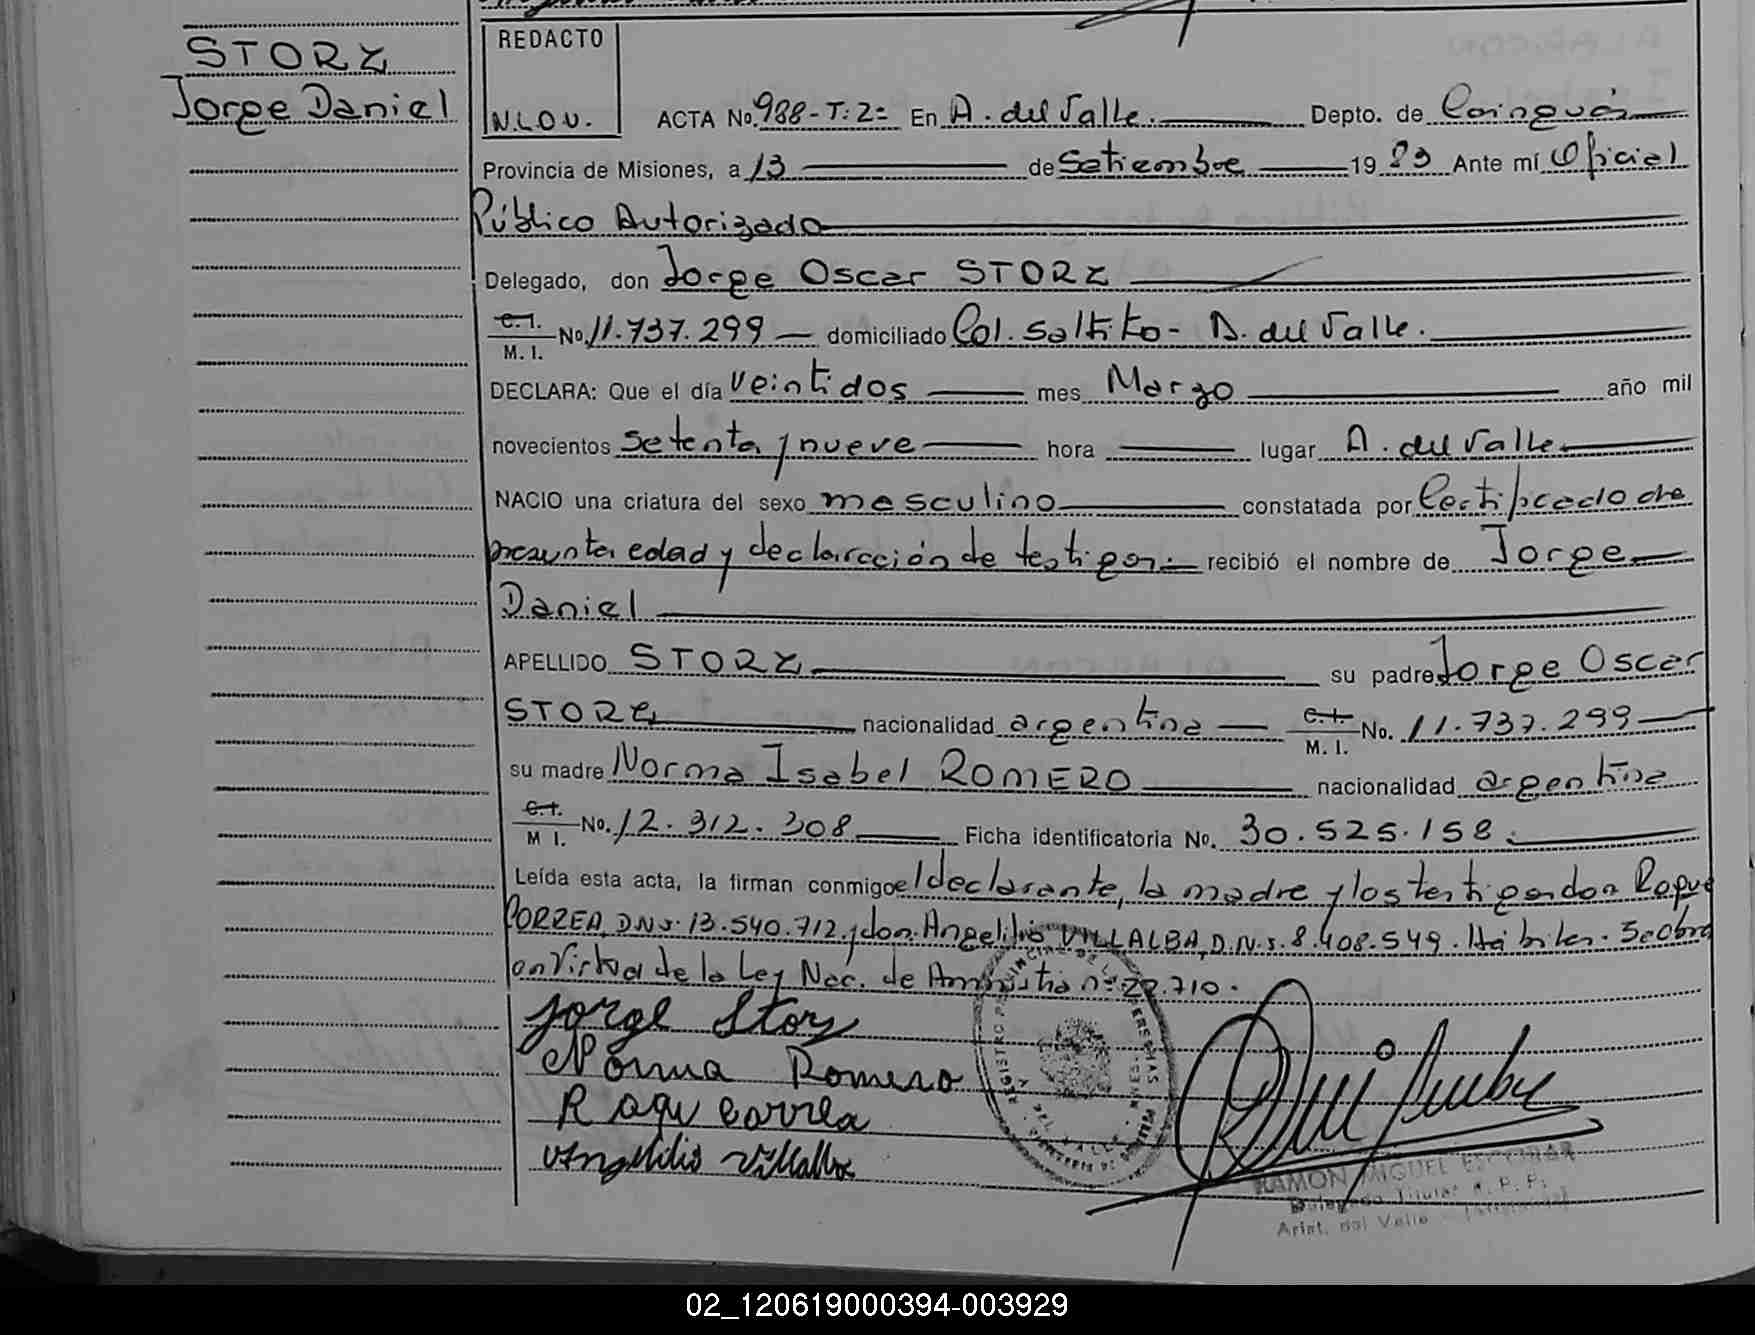 STORZ
Jorge Daniel
REDACTO
N.L.O.V.
ACTA No. 988-T:2= En A. del Valle. Depto. de Cainguás
Provincia de Misiones, a 13 de Setiembre 1983 Ante mí Oficial
Público Autorizado
Delegado, don Jorge Oscar STORZ
C.I. M.I. No 11.737.299 domiciliado Col. Saltito - A. del Valle.
DECLARA: Que el día veintidos mes Marzo año mil
novecientos setenta y nueve hora lugar A. del Valle
NACIO una criatura del sexo masculino constatada por Certificado de
presunta edad y declaración de testigos.- recibió el nombre de Jorge
Daniel
APELLIDO STORZ su padre Jorge Oscar
STORZ nacionalidad argentina C.I. M.I. No. 11.737.299
su madre Norma Isabel ROMERO nacionalidad argentina
C.I. M I. No. 12.312.308 Ficha identificatoria No. 30.525.158.
Leída esta acta, la firman conmigo el declarante, la madre y los testigos don Roque
CORREA, D.N.I. 13.540.712 y don Angelilio VILLALBA, D.N.I. 8.408.549. Hábiles. Se labra
en Virtud de la Ley Nac. de Amnistia nº 22.710.
Jorge Storz
Norma Romero
Roqu Correa
Angelilio Villalba
RAMON MIGUEL ESCOBAR
Delegado Titular R. P. P.
Arist. del Valle - (Misiones)
02_120619000394-003929